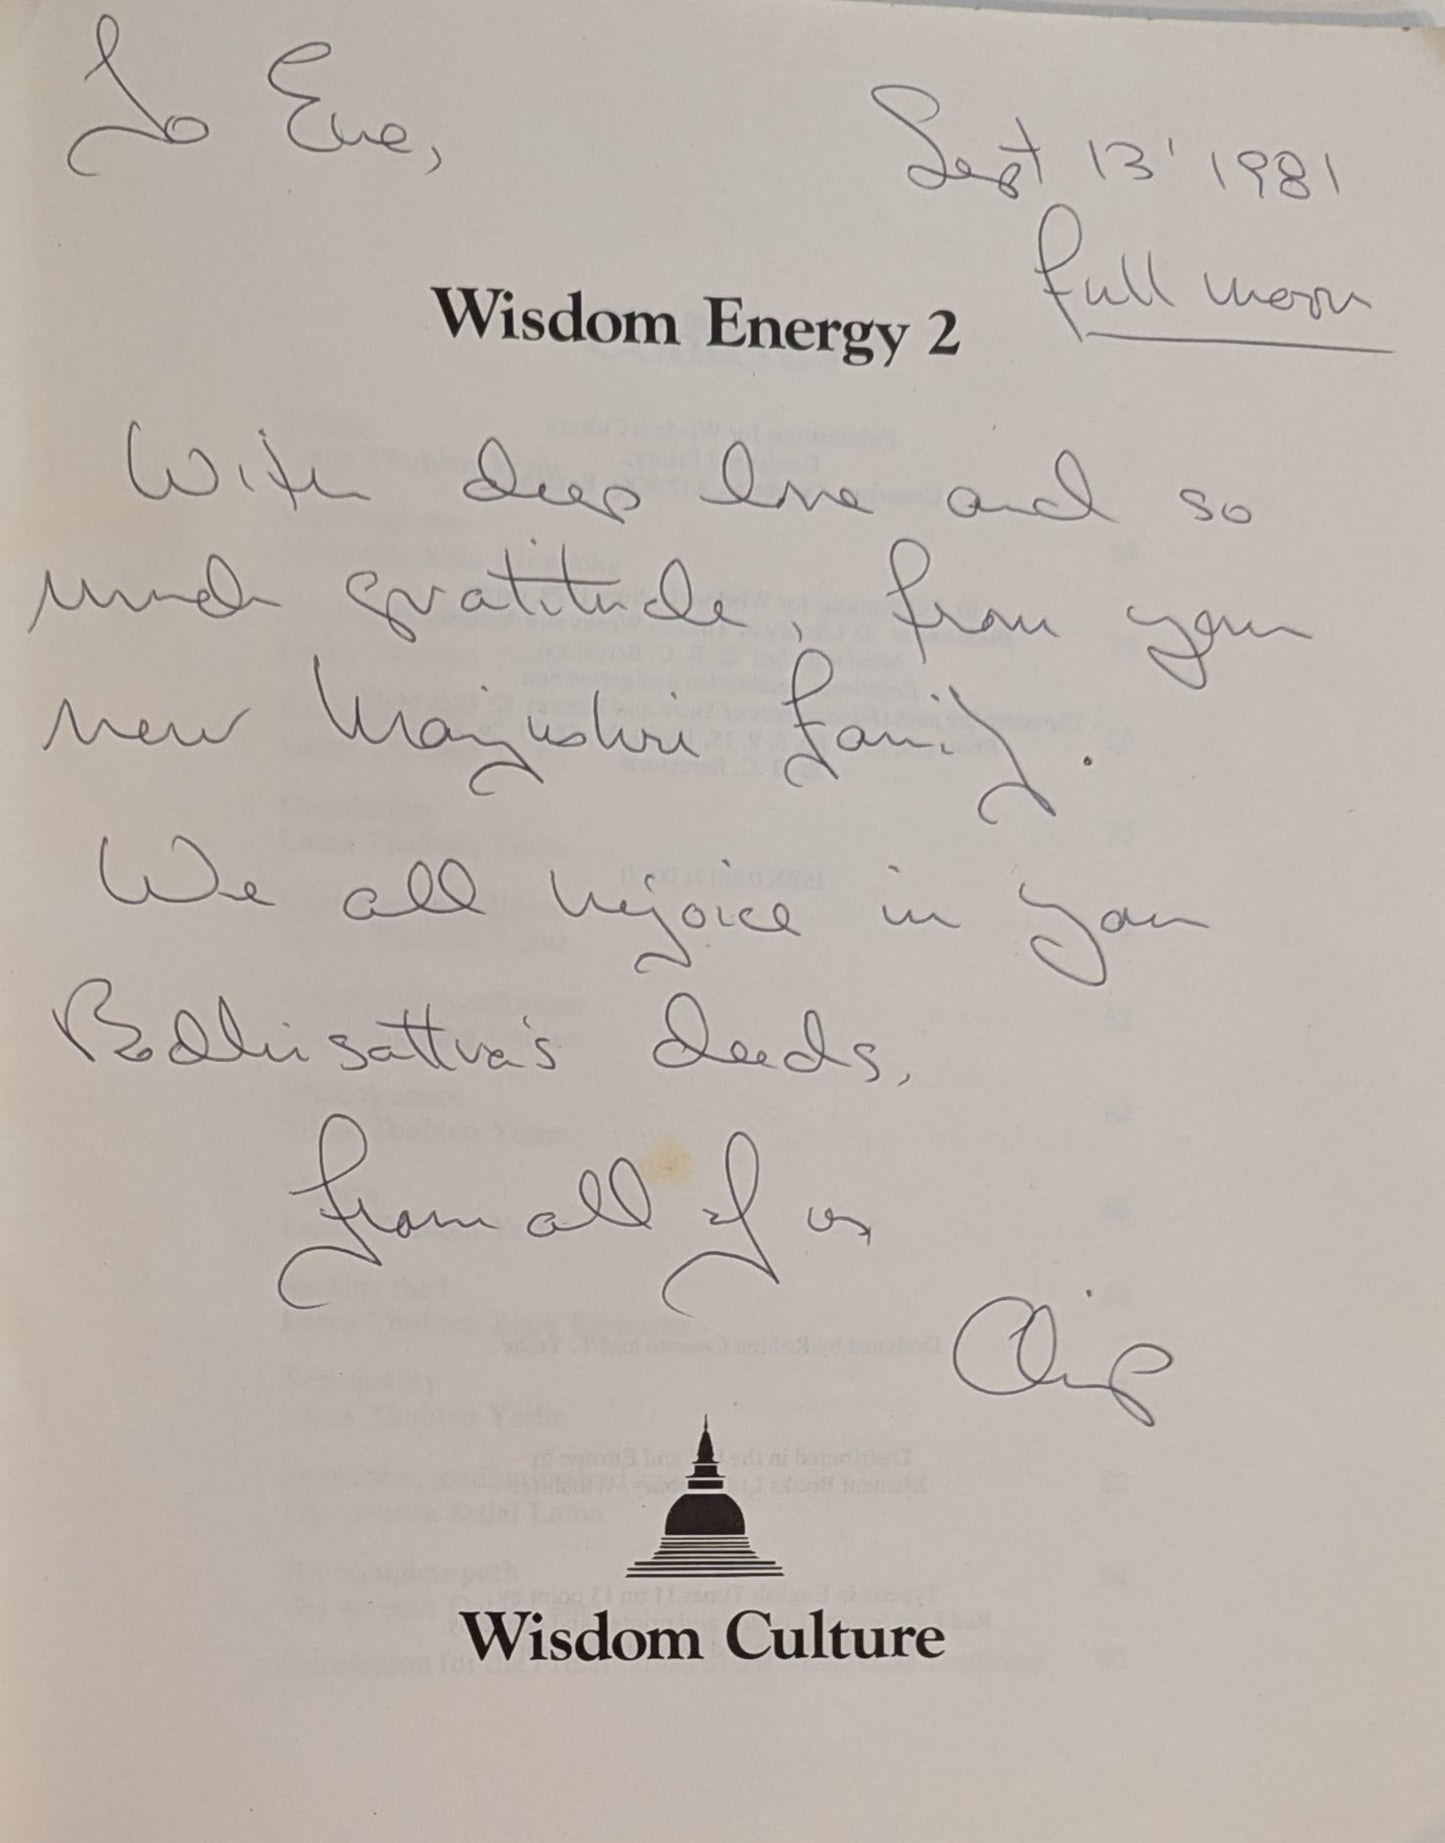 To Eve,
Sept 13' 1981
full moon
Wisdom Energy 2
With deep love and so
much gratitude, from your
new Manjushri family.
We all rejoice in your
Bodhisattva's deeds,
from all of us
Wisdom Culture